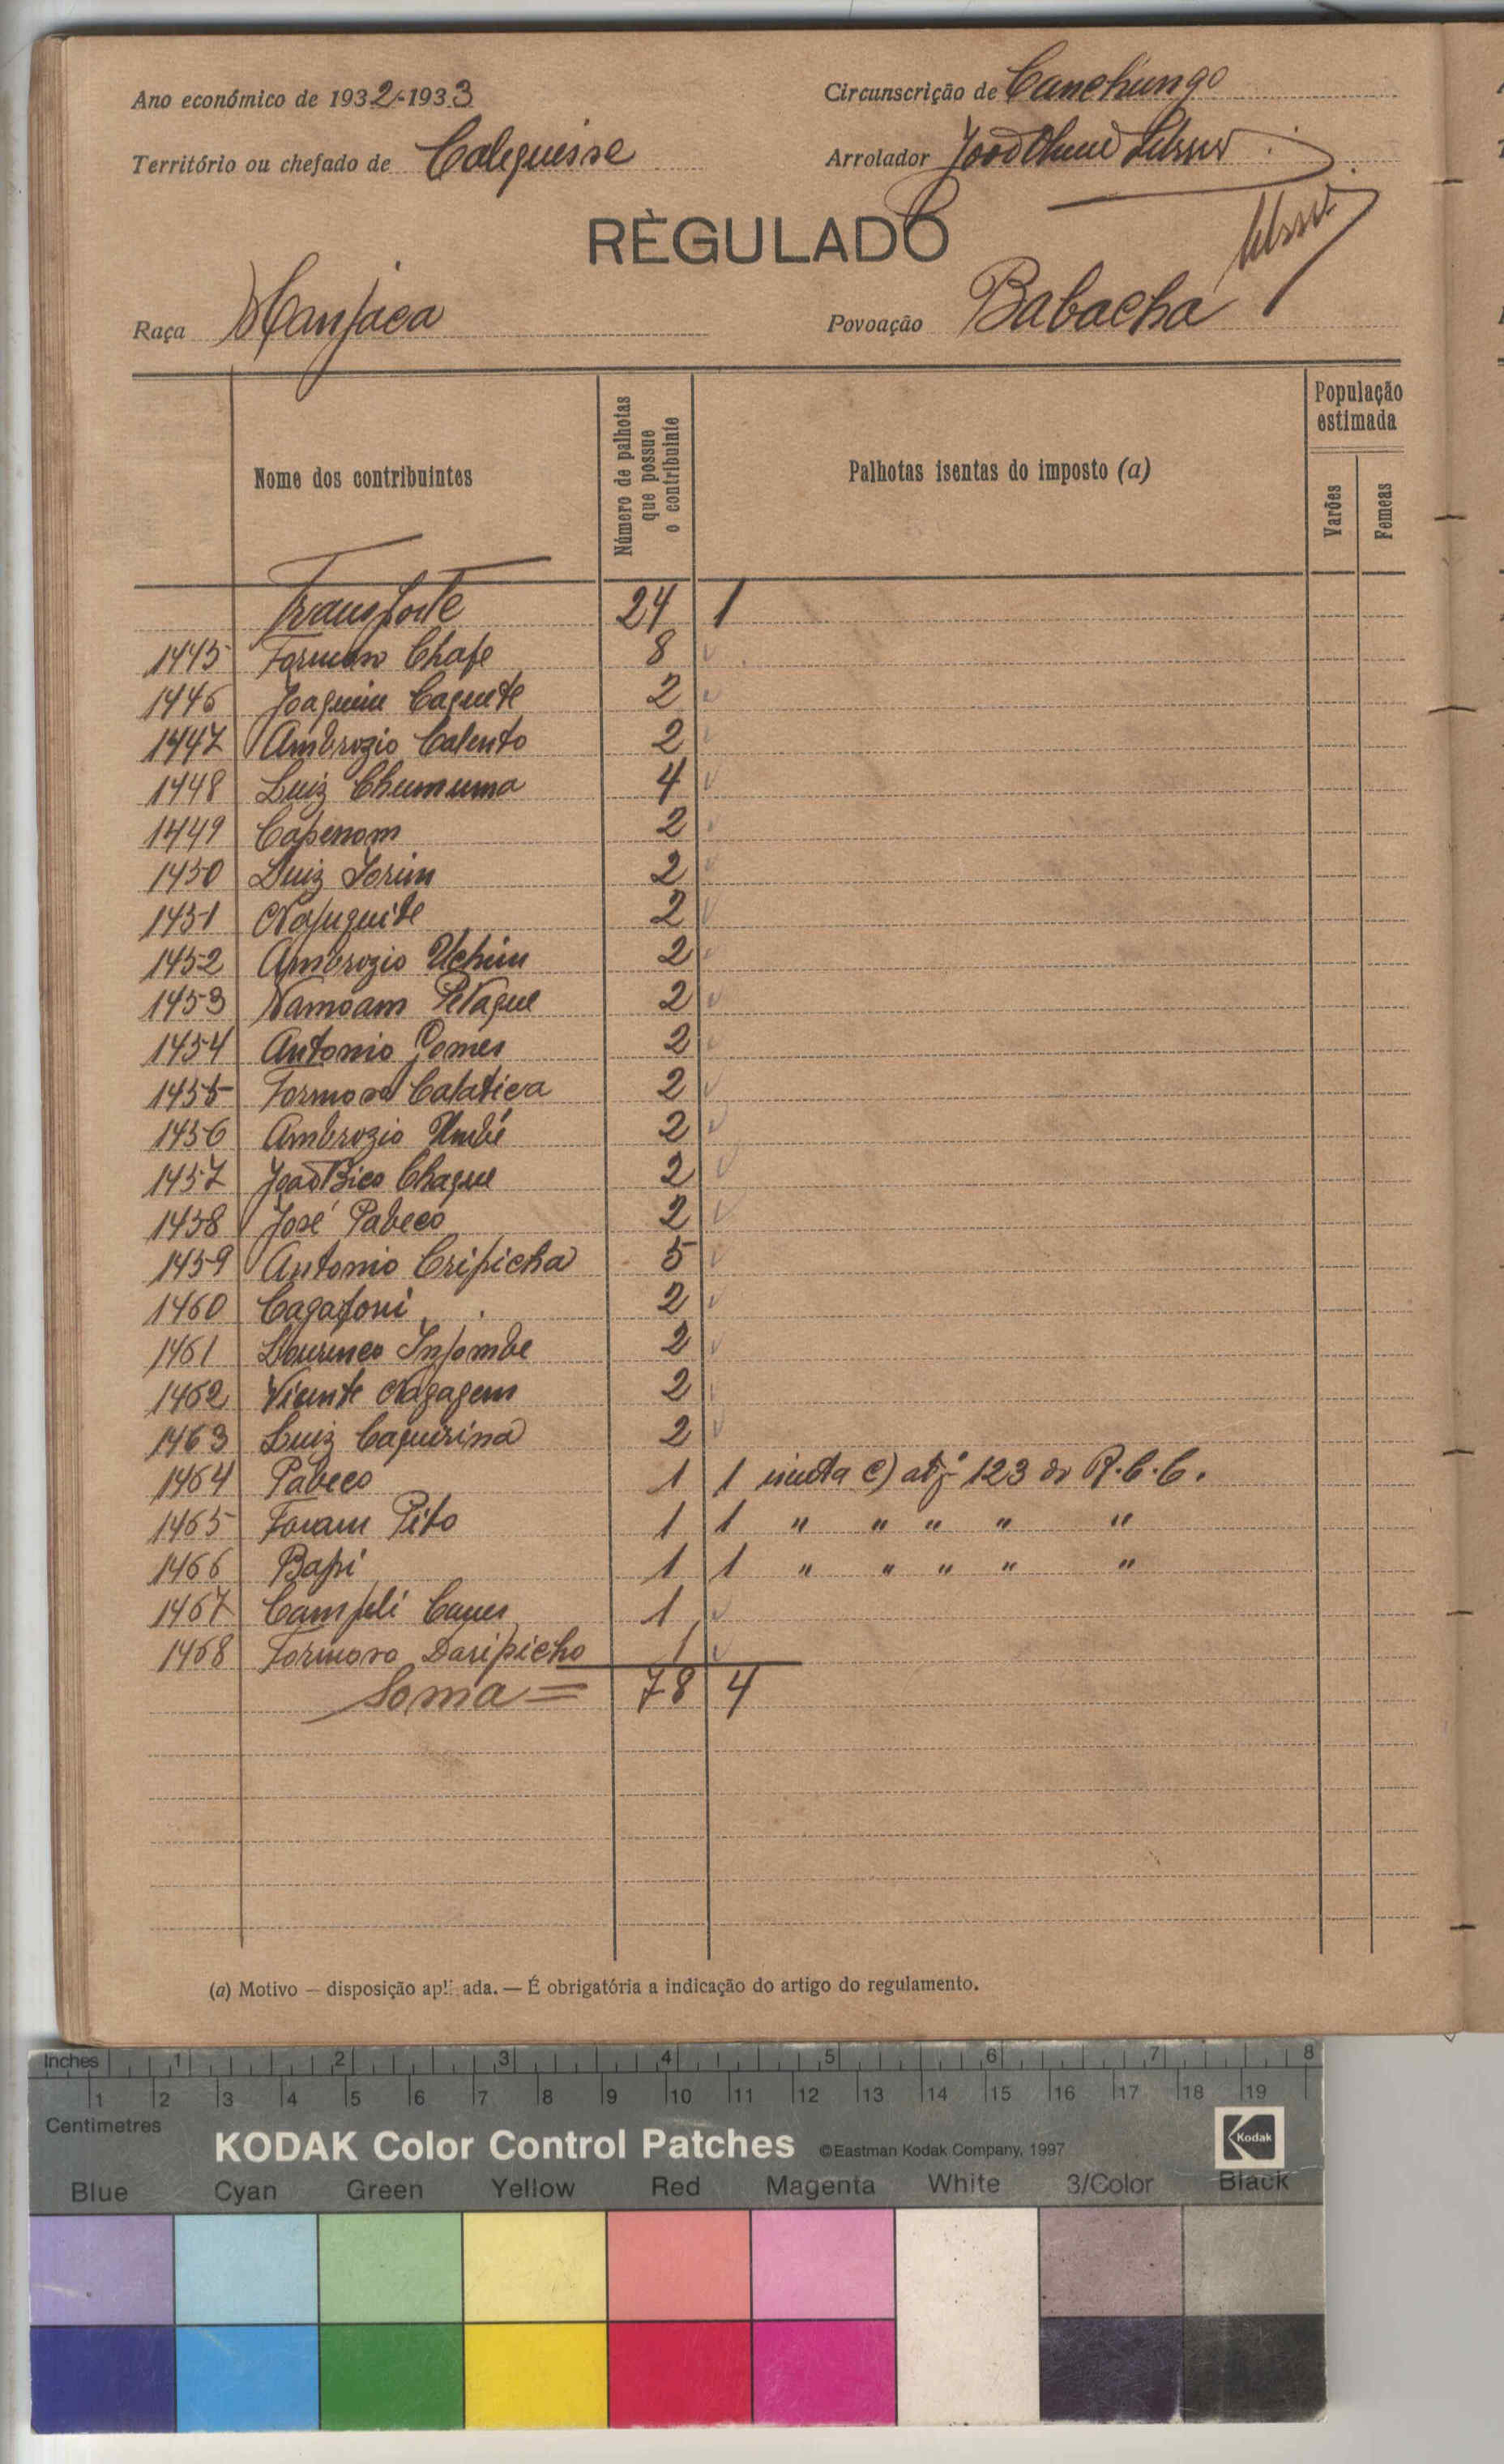 Ano económico de 1932-1933
Circunscrição de Canchungo
Território ou chefado de Calequisse
Arrolador João
RÈGULADO
Raça Manjaca
Povoação Babacha
Nome dos contribuintes
Número de palhotas que possue o contribuinte
Palhotas isentas do imposto (a)
População estimada
Varões
Femeas
Transporte 24 1
1445 Formoso Chafe 8
1446 Joaquim Caquete 2
1447 Ambrozio Calento 2
1448 Luiz Chumuma 4
1449 Capenom 2
1450 Luiz Jorim 2
1451 2
1452 Ambrozio Uchim 2
1453 Namoam 2
1454 Antonio Gomes 2
1455 Formoso Calatica 2
1456 Ambrozio 2
1457 João Bico Chague 2
1458 José Pabeco 2
1459 Antonio Cripicha 5
1460 2
1461 Lourenço Injombe 2
1462 Vicente 2
1463 Luiz Caquirina 2
1464 Pabeco 1 1 isenta c) 123 do R.C.C.
1465 Pito 1 1 " " " " "
1466 Bapi 1 1 " " " " "
1467 1
1468 Formoso Daripicho 1
Soma = 78 4
(a) Motivo — disposição apli ada. — É obrigatória a indicação do artigo do regulamento.
Inches 1 2 3 4 5 6 7 8
1 2 3 4 5 6 7 8 9 10 11 12 13 14 15 16 17 18 19
Centimetres
KODAK Color Control Patches ©Eastman Kodak Company, 1997 Kodak
Blue Cyan Green Yellow Red Magenta White 3/Color Black